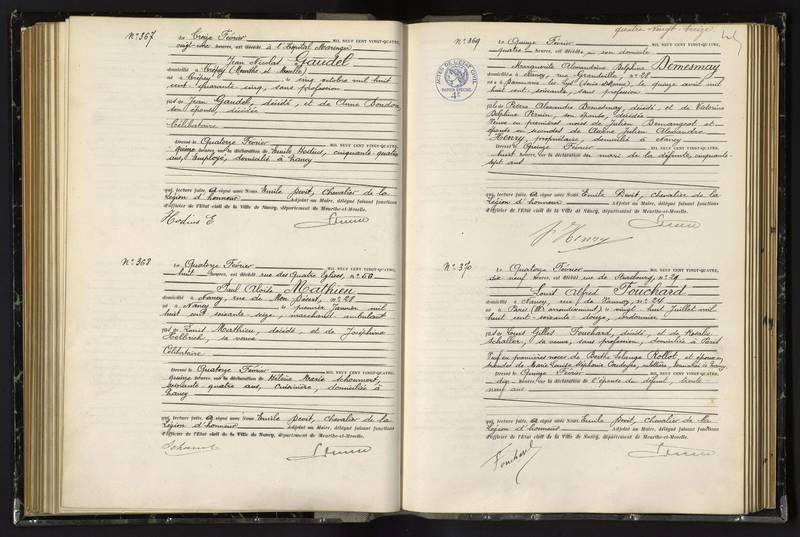 N° 367
Le Treize Février MIL NEUF CENT VINGT-QUATRE,
vingt-une heures, est décédé à l'Hôpital Maringer
Jean Nicolas Gaudel
domicilié à Crépey (Meurthe et Moselle)
né à Crépey le cinq octobre mil huit
cent quarante cinq, sans profession
fils de Jean Gaudel, décédé, et de Anne Bondon,
son épouse, décédée
Célibataire
Dressé le Quatorze Février MIL NEUF CENT VINGT-QUATRE,
quinze heures, sur la déclaration de Emile Hodius, cinquante quatre
ans, Employé, domicilié à Nancy
qui, lecture faite, a signé avec Nous Emile Devit, Chevalier de la
Légion d'honneur Adjoint au Maire, délégué faisant fonctions
d'Officier de l'Etat civil de la Ville de Nancy, département de Meurthe-et-Moselle.
Hodius E
N° 368
Le Quatorze Février MIL NEUF CENT VINGT-QUATRE,
huit heures, est décédé rue des Quatre Eglises, n° 50
Paul Aloïse Mathieu
domicilié à Nancy, rue de Mon Désert, n° 28
né à Nancy le premier Janvier mil
huit cent soixante seize, marchand ambulant
fils de Louis Mathieu, décédé, et de Joséphine
Helbrick, sa veuve
Célibataire
Dressé le Quatorze Février MIL NEUF CENT VINGT-QUATRE,
quinze heures, sur la déclaration de Hélène Marie
soixante quatre ans, Cuisinière, domiciliée à
Nancy
qui, lecture faite, a signé avec Nous Emile Devit, Chevalier de la
Légion d'honneur Adjoint au Maire, délégué faisant fonctions
d'Officier de l'Etat civil de la Ville de Nancy, département de Meurthe-et-Moselle.
quatre-vingt-treize
N° 369
ACTES DE L'ETAT CIVIL
PAPIER SPECIAL
Le Quinze Février MIL NEUF CENT VINGT-QUATRE,
quatre heures, est décédée en son domicile
Marguerite Alexandrine Delphine Demesmay
domiciliée à Nancy, rue Grandville, n° 28
née à le quinze avril mil
huit cent soixante, sans profession
fille de Pierre Alexandre Demesmay, décédé, et de Victorine
Delphine Perrin, son épouse, décédée
Veuve en premières noces de Julien Demangeot et
épouse en secondes de Julien Alexandre
Henry, propriétaire, domicilié à Nancy
Dressé le Quinze Février MIL NEUF CENT VINGT-QUATRE,
huit heures, sur la déclaration du mari de la défunte, cinquante-
sept ans
qui, lecture faite, a signé avec Nous Emile Devit, Chevalier de la
Légion d'honneur Adjoint au Maire, délégué faisant fonctions
d'Officier de l'Etat civil de la Ville de Nancy, département de Meurthe-et-Moselle.
Henry
N° 370
Le Quatorze Février MIL NEUF CENT VINGT-QUATRE,
dix neuf heures, est décédé rue de Strasbourg, n° 29
Louis Alfred Fouchard
domicilié à Nancy, rue de n° 24
né à Paris le vingt huit Juillet mil
huit cent soixante douze,
fils de Louis Gilles Fouchard, décédé, et de Rosalie
Schaller, sa veuve, sans profession, domiciliée à Paris
Veuf en premières noces de Berthe Solange Rollot, et époux en
secondes de Marie Louise domiciliée à Nancy
Dressé le Quinze Février MIL NEUF CENT VINGT-QUATRE,
dix heures, sur la déclaration de l'épouse du défunt, trente-
neuf ans
qui, lecture faite, a signé avec Nous Emile Devit, Chevalier de la
Légion d'honneur Adjoint au Maire, délégué faisant fonctions
d'Officier de l'Etat civil de la Ville de Nancy, département de Meurthe-et-Moselle.
Fouchard